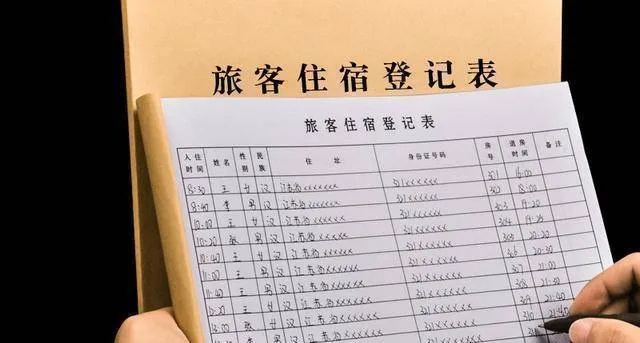 旅客住宿登记表
旅客住宿登记表
入住时间 姓名 性别 民族 住址 身份证号码 房号 退房时间 备注
8:30 王 女 汉 江苏省xxxxxx 321xxxxxx 301 16:00
8:40 李 男 汉 江苏省xxxxxx 321xxxxxx 302 18:00
10:00 王 女 汉 江苏省xxxxxx 321xxxxxx 303 19:20
10:20 张 男 汉 江苏省xxxxx 321xxxxxx 304 19:25
10:40 王 女 汉 江苏省xxxxx 321xxxxxx 305 20:20
11:00 王 男 汉 江苏省xxxxx 321xxxxxx 306 20:30
11:40 王 女 汉 江苏省xxxxx 321xxxxxx 307 21:00
王 男 汉 江苏省xxxxx 321xxxxxx 308 21:30
张 女 汉 江苏省xxxxx 321xxxxxx 309 21:40
李 男 汉 江苏省xxxxx 321xxxxxx 310 21:40